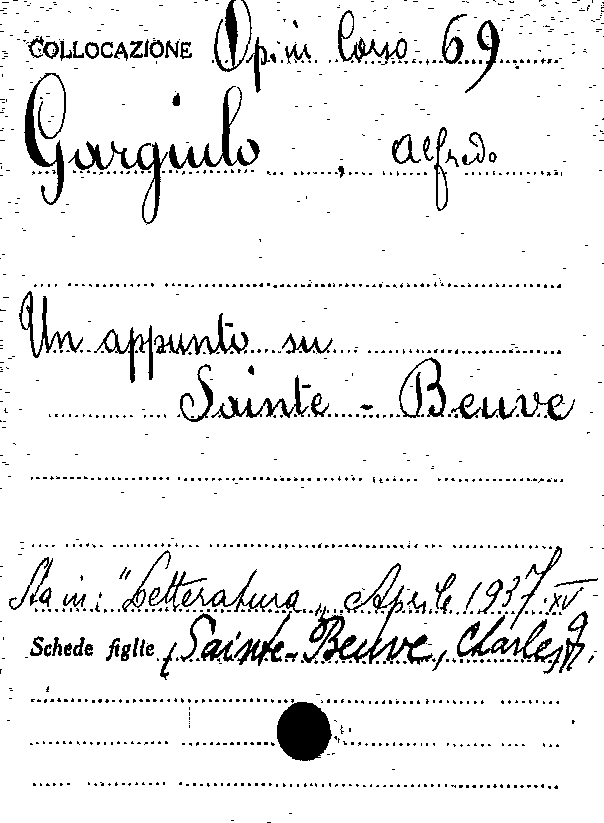 COLLOCAZIONE Op. in Corso 69
Gargiulo, Alfredo
Un appunto su
Sainte - Beuve
Sta in: "Letteratura" Aprile 1937. XV
Schede figlie Sainte-Beuve, Charles